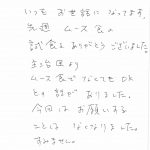 いつも お世話に なってます。
先週 ムース食の
試食を ありがとう ございました。
主治医より
ムース食で なくても OK
との 話が ありました。
今回は お願いする
ことは なくなりました。
すみません。